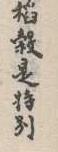 稻穀是特別